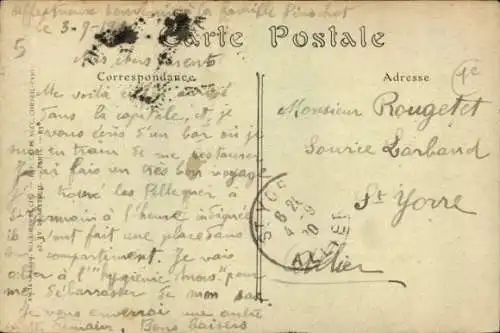 Affectueux souvenir à la famille Pinochet
le 3-9-
5
Carte Postale
Mes chers parents
Correspondance
Adresse
Me voilà arrivé
dans la capitale, et je
vous écris d'un bar où je
suis en train de me restaurer
J'ai fait un très bon voyage
J'ai trouvé les Pelleguer à
St Germain à l'heure indiquée
ils m'ont fait une place dans
leur compartiment. Je vais
aller à l'"hygiène" pour
me débarrasser de mon sac
Je vous enverrai une autre
Bons baisers
Monsieur Rougetet
Source Larbaud
St Yorre
Allier
ST YORRE
ALLIER